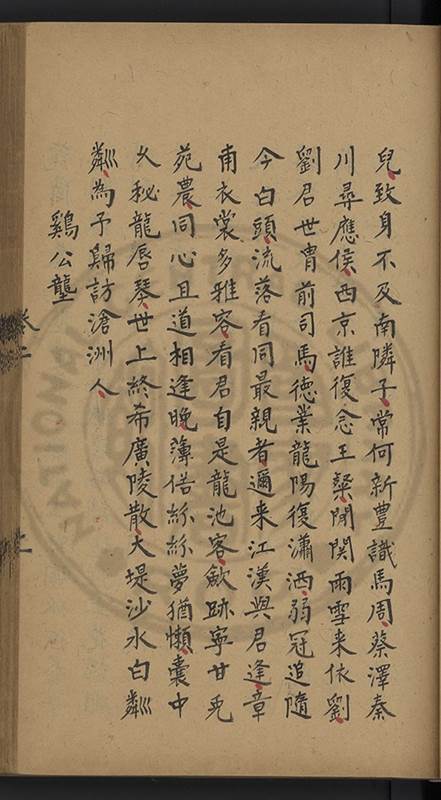 兒致身不及南隣子常何新豊識馬周蔡澤秦
川尋應侯西京誰復念王粲聞關雨雪来依劉
劉君世胄前司馬德業龍陽復瀟洒弱冠追隨
今白頭流落看同最親者邇来江漢與君逢章
甫衣裳多雅容看君自是龍池客歛跡寧甘兎
苑農同心且道相逢晚薄俗紛紛夢猶懶囊中
久秘龍唇琴世上終希廣陵散大堤沙水白粼
粼為予歸訪滄洲人
鷄公壟